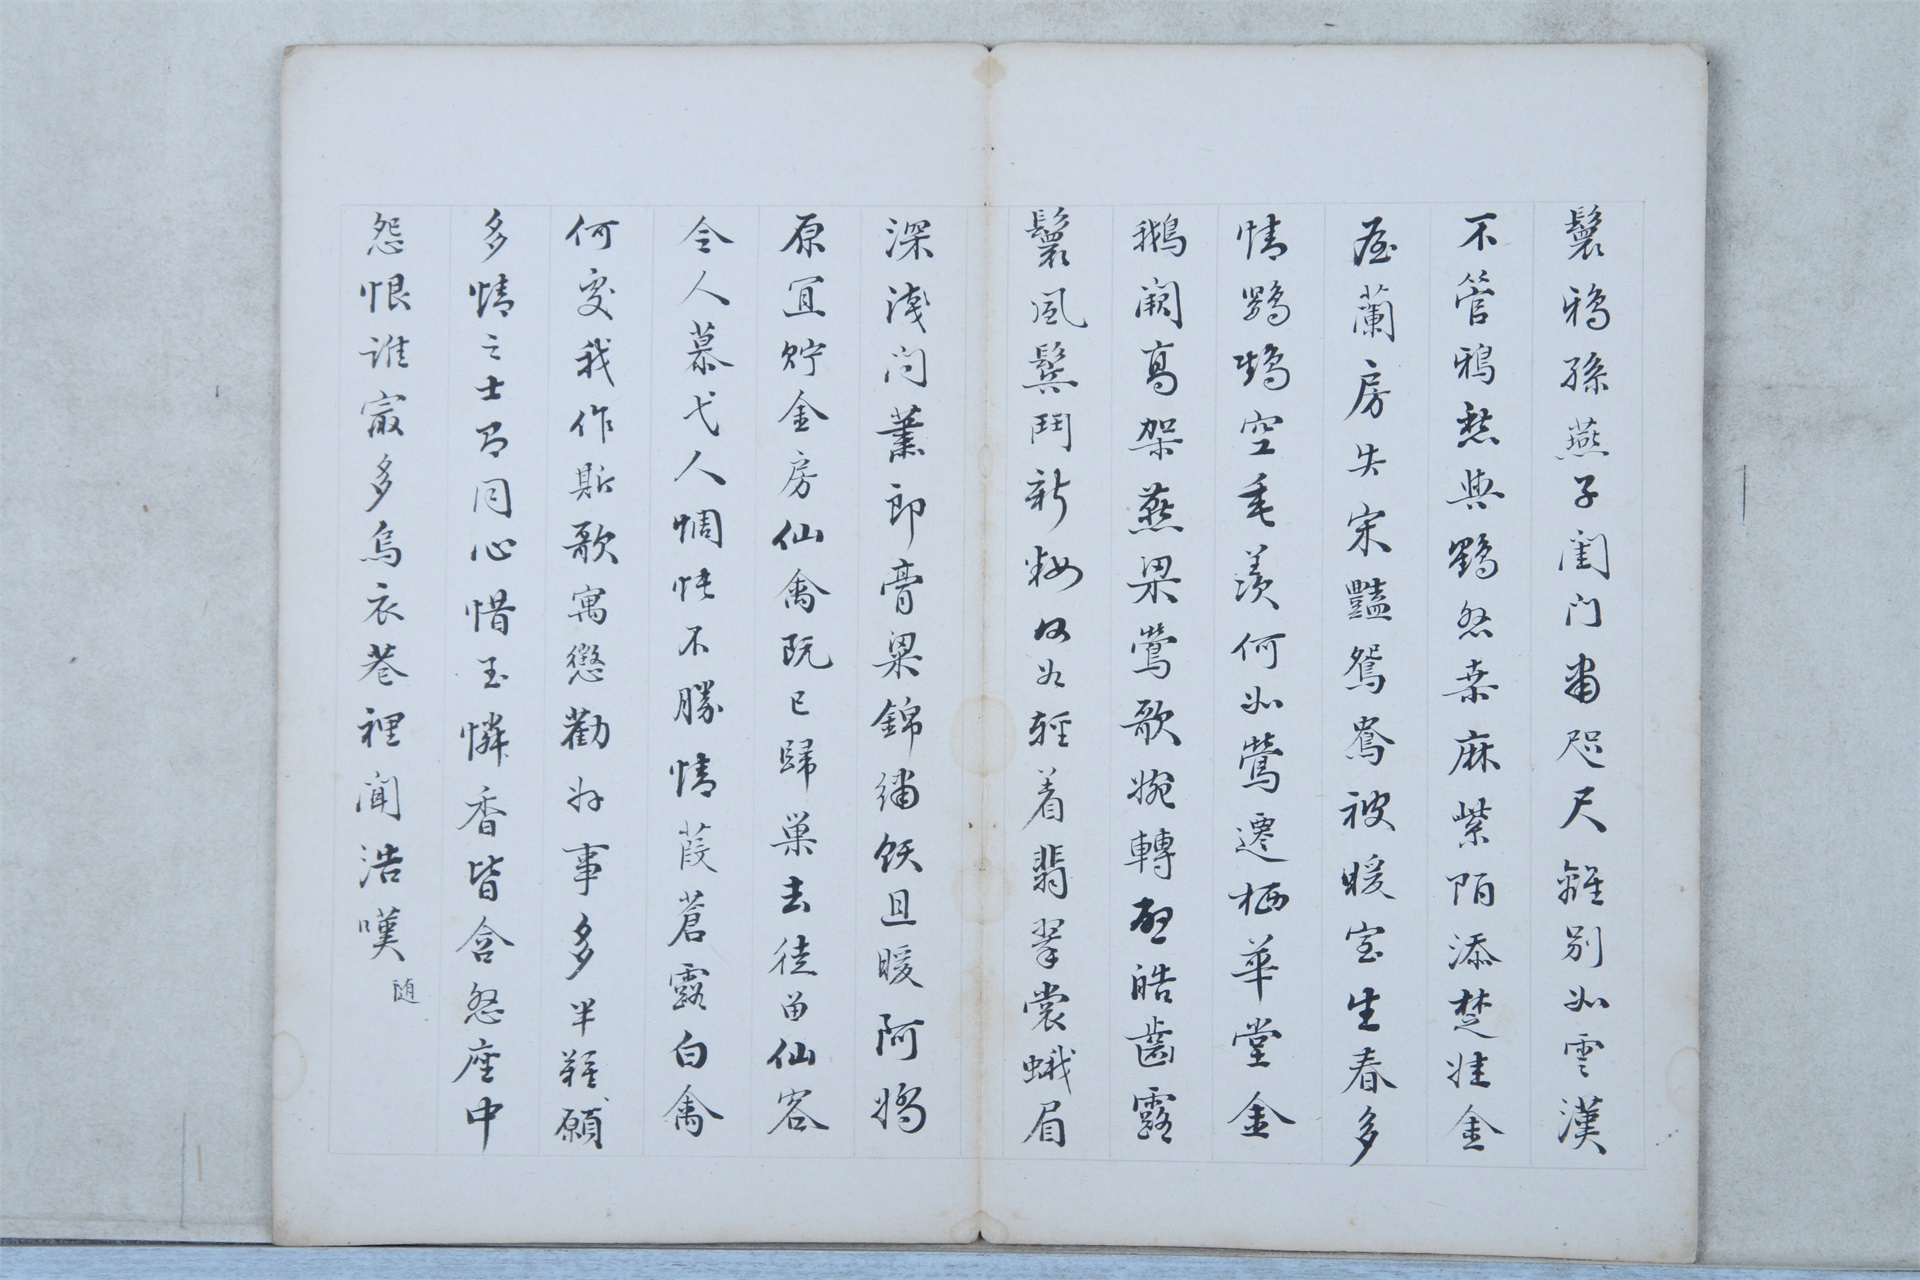 鬟鴉孫燕子閨門肅咫尺雖別如雲漢
不管鴉愁與鶴怨桑麻紫陌添楚娃金
屋蘭房失宋豔鴛鴦被暖宝生春多
情鸚鵡空毛羨何如鶯遷栖華堂金
鵝闕高架燕梁鶯歌婉轉啟皓齒露
鬟風鬢鬥新妝又如輕着翡翠裳蛾眉
深淺问蕭郎膏粱錦繡飫且暖阿嬌
原宜貯金房仙禽既已歸巢去徒留仙容
令人慕弋人惆悵不勝情葭蒼露白禽
何處我作斯歌寓懲勸好事多半難願
多情之士乃同心惜玉憐香皆含怨座中
怨恨誰最多烏衣巷裡聞浩嘆
随